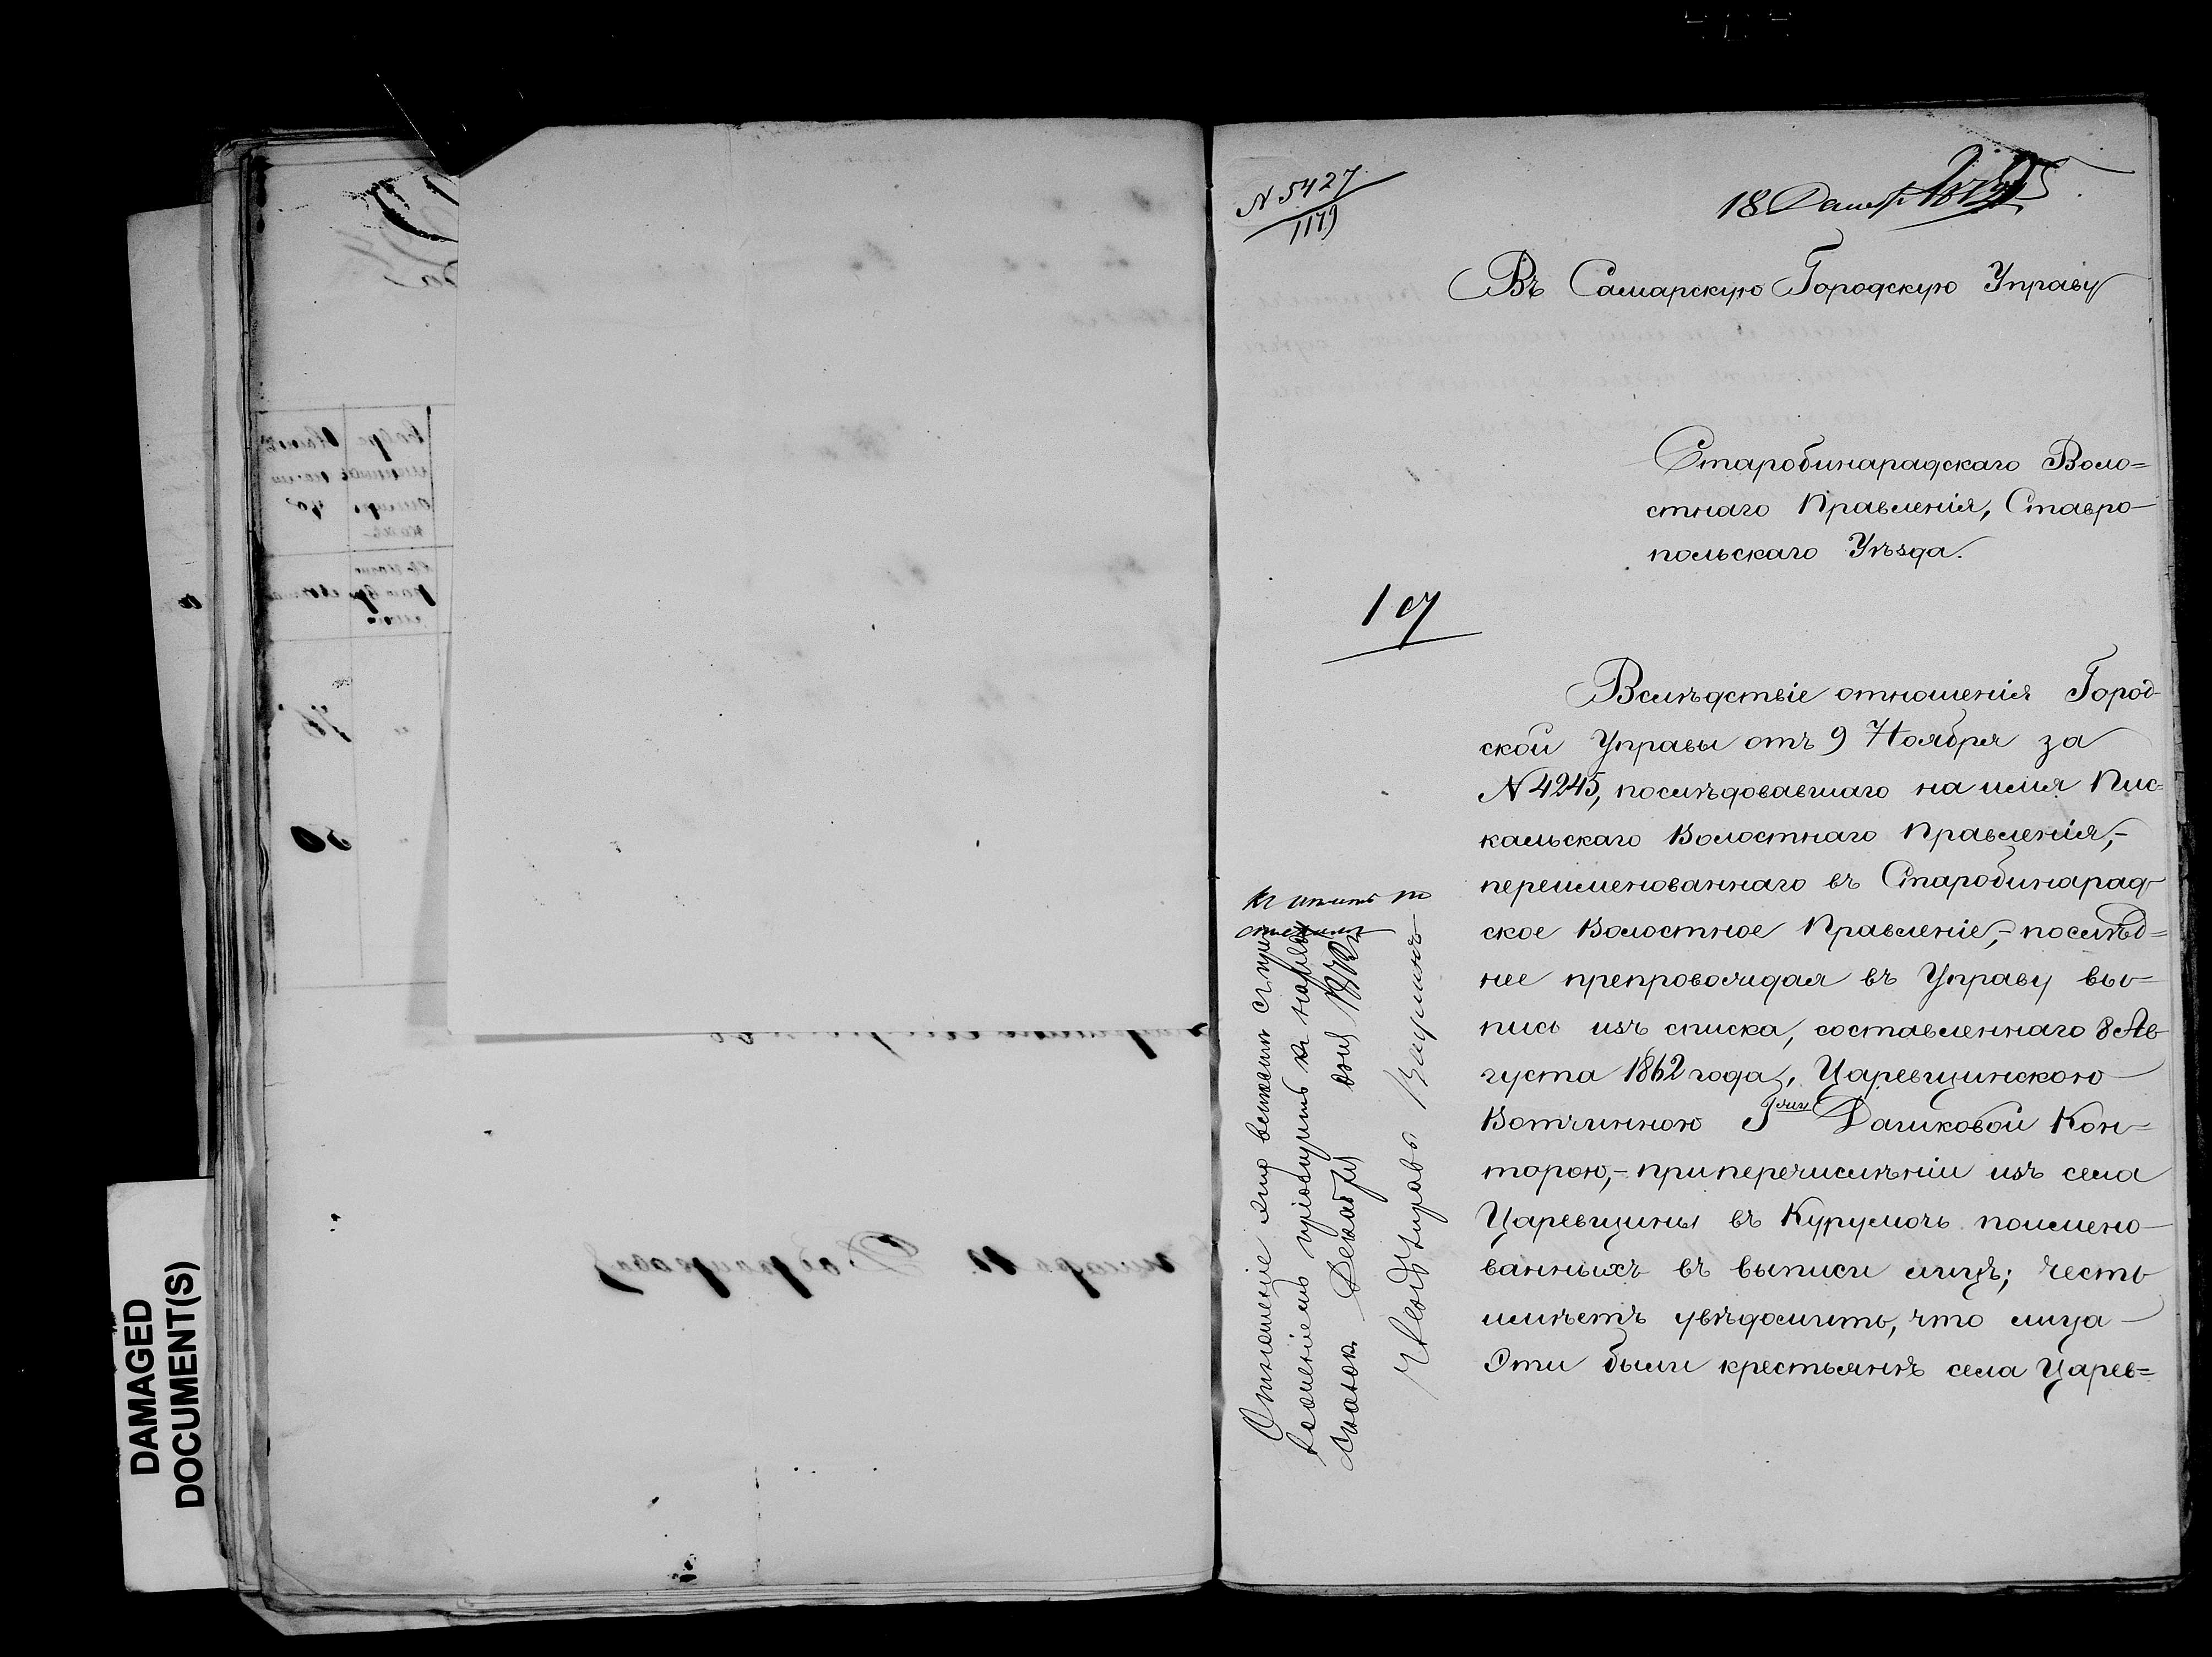 N 5427
1179
18 Декаб.
Въ Самарскую Городскую Управу
Старобинарадскаго Воло=
стнаго Правленія, Ставро-
польскаго Уѣзда.
107
Вслѣдствіе отношенія Город-
ской Управы отъ 9 Ноября за
N 4245, послѣдовавшаго на имя Пис-
кальскаго Волостнаго Правленія,-
переименованнаго въ Старобинарад-
ское Волостное Правленіе,- послѣд=
нее препровождая въ Управу вы-
пись изъ списка, составленнаго 8 Ав-
густа 1862 года, Царевщинскою
Вотчинною Гжи Дашковой Кон=
торою,- при перечислѣніи изъ села
Царевщины въ Курумочь поимено-
ванныхъ въ выписи лицъ; честь
имѣетъ увѣдомить, что лица
Эти были крестьянъ села Царев=
Отношеніе это
къ
Декабря дня
Управы
DAMAGED
DOCUMENT(S)